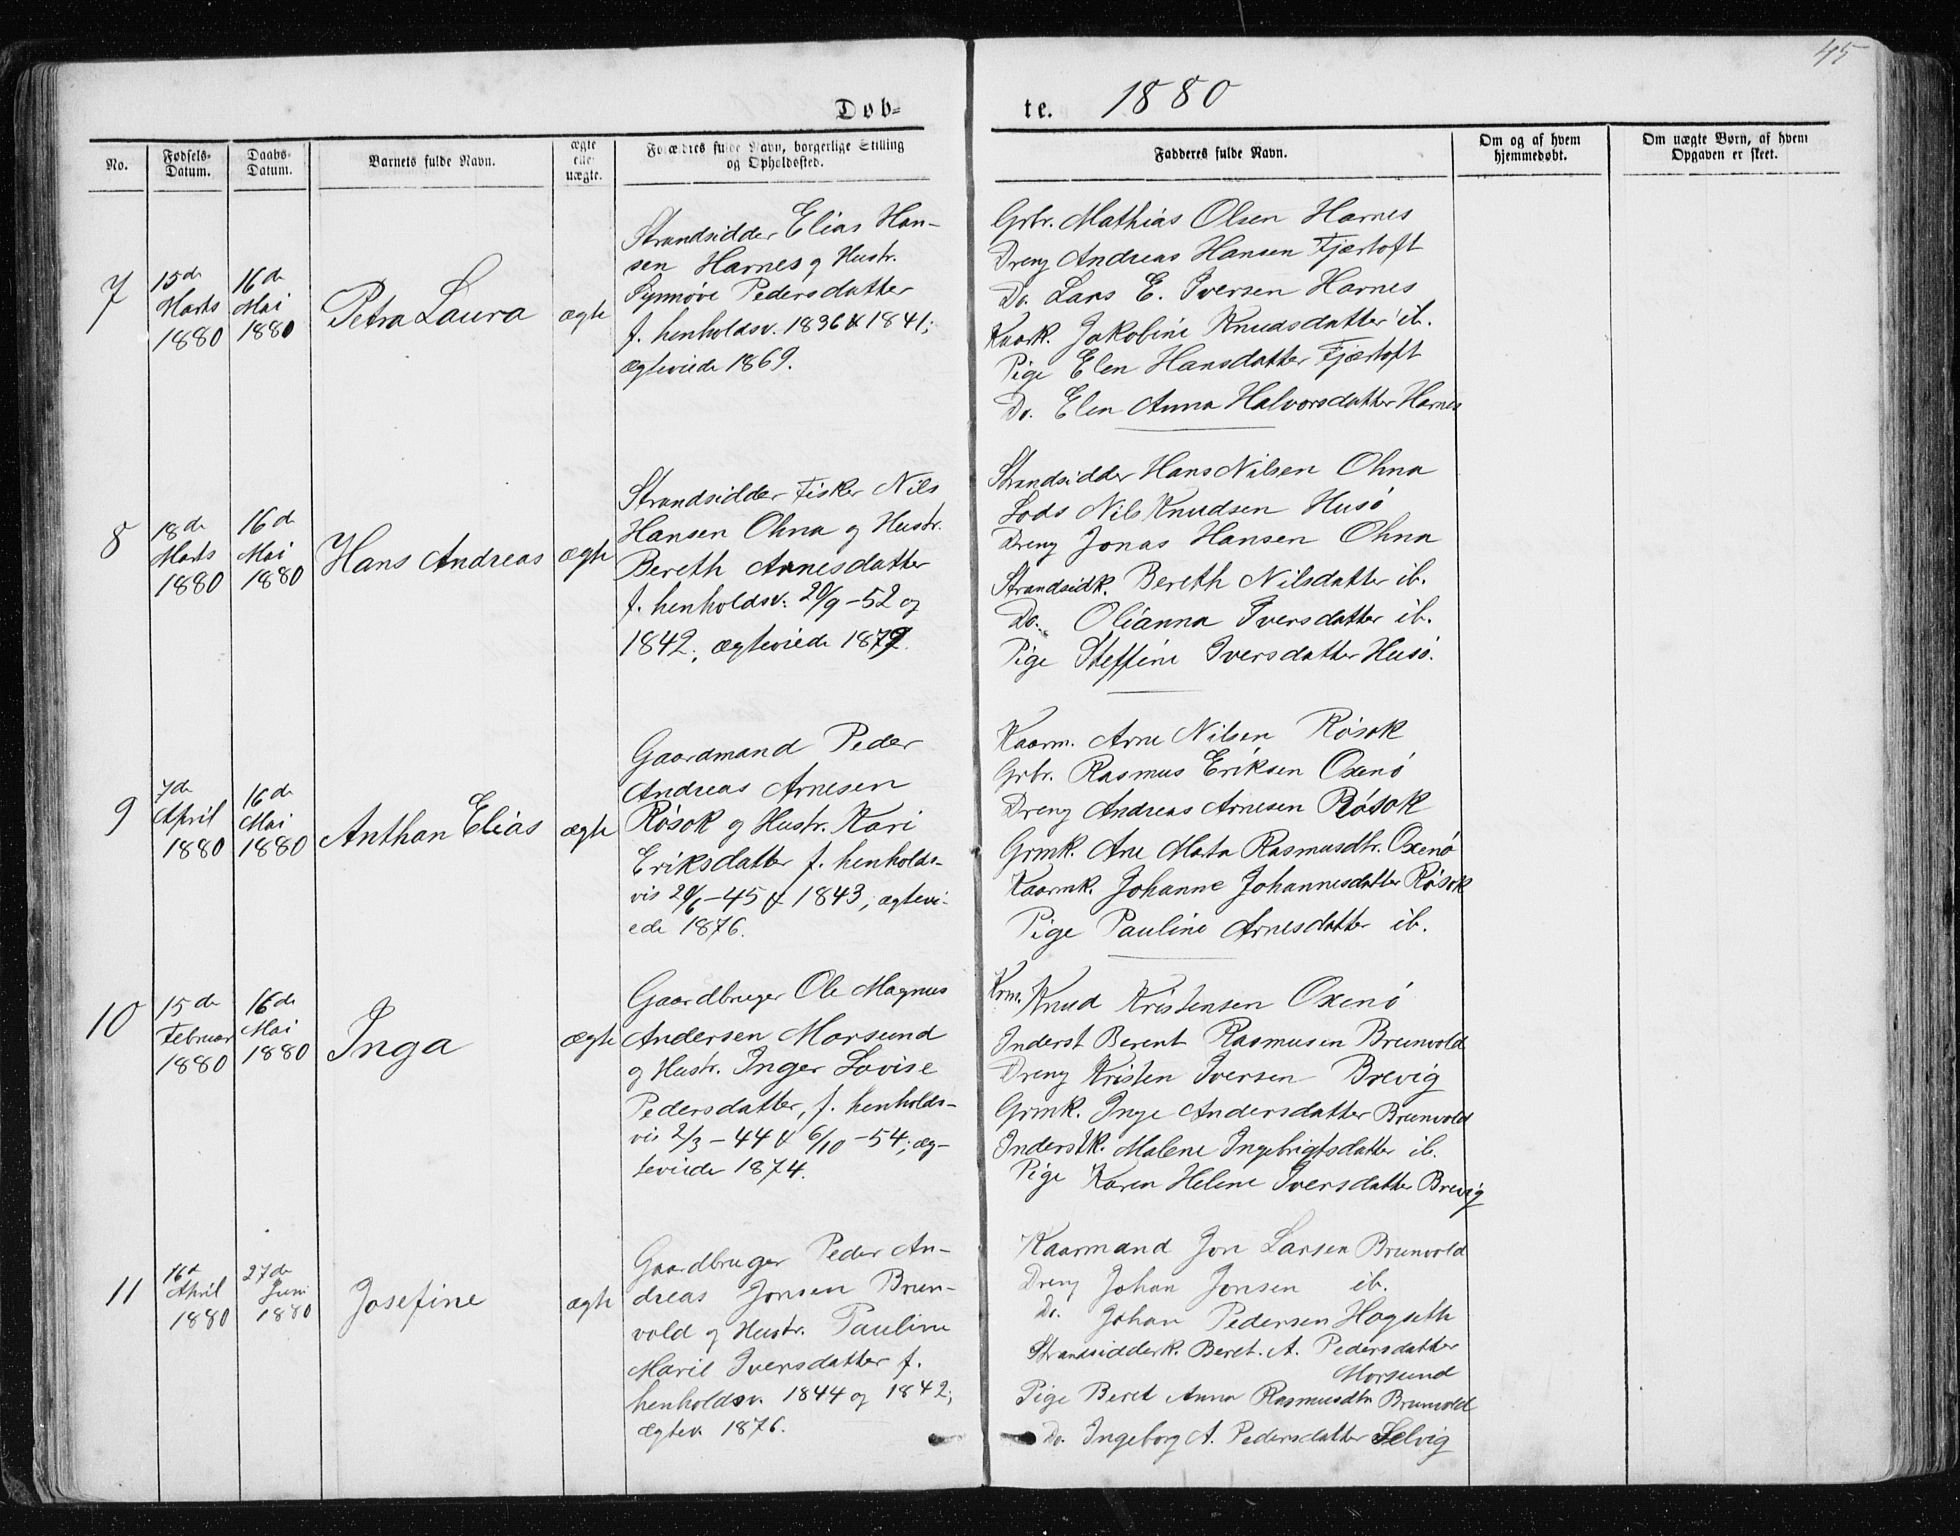 45
Døb-
te. 1880
No.
Fødsels-
Datum.
Daabs-
Datum.
Barnets fulde Navn.
ægte
eller
uægte.
Forældres fulde Navn, borgerlige Stilling
og Opholdssted.
Fadderes fulde Navn.
Om og af hvem
hjemmedøbt.
Om uægte Børn, af hvem
Opgaven er skeet.
7
15de
Marts
1880
16de
Mai
1880
Petra Laura
ægte
Strandsidder Elias Han-
sen Harnes og Hustr.
Synnøve Pedersdatter
f. henholdsv. 1836 & 1841;
ægteviede 1869.
Grbr. Mathias Olsen Harnes
Dreng Andreas Hansen Fjærtoft
Do. Lars E. Iversen Harnes
Kaark. Jakobine Knudsdatter ib.
Pige Elen Hansdatter Fjærtoft
Do. Elen Anna Halvorsdatter Harnes
8
18de
Marts
1880
16de
Mai
1880
Hans Andreas
ægte
Strandsidder Fisker Nils
Hansen Ohna og Hustr.
Bereth Arnesdatter
f. henholdsv: 20/9-52 og
1842; ægteviede 1879.
Strandsidder Hans Nilsen Ohna
Lods Nils Knudsen Husö
Dreng Jonas Hansen Ohna
Strandsidk. Bereth Nilsdatter ib.
Do. Olianna Iversdatter ib.
Pige Steffine Iversdatter Husö.
9
7de
April
1880
16de
Mai
1880
Anthon Elias
ægte
Gaardmand Peder
Andreas Arnesen
Rösok og Hustr. Kari
Eriksdatter f. henholds-
vis 20/6-45 & 1843; ægtevi-
ede 1876.
Kaarm. Arne Nilsen Rösok
Grbr. Rasmus Eriksen Oxenö
Dreng Andreas Arnesen Rösok
Grmk. Ane Marta Rasmusdtr. Oxenö
Kaarmk. Johanne Johannesdatter Rösok
Pige Pauline Arnesdatter ib.
10
15de
Februar
1880
16de
Mai
1880
Inga
ægte
Gaardbruger Ole Magnus
Andersen Morsund
og Hustr. Inger Lovise
Pedersdatter, f. henholds-
vis 2/3-44 & 6/10-54; æg-
teviede 1874.
Krm. Knud Kristensen Oxenö
Inderst Berent Rasmusen Brunvold
Dreng Kristen Iversen Brevig
Grmk. Inge Andersdatter Brunvold
Inderstk. Malene Ingebrigtsdatter ib.
Pige Karen Helene Iversdatter Brevig
11
16de
April
1880
27de
Juni
1880
Josefine
ægte
Gaardbruger Peder An-
dreas Jonsen Brun-
vold og Hustr. Pauline
Marit Iversdatter f.
henholdsv. 1844 og 1842;
ægtev. 1876.
Kaarmand Jon Larsen Brunvold
Dreng Johan Jonsen ib.
Do. Johan Pedersen Hagseth
Strandsidderk. Beret. A. Pedersdatter
Morsund
Pige Beret Anna Rasmusdtr Brunvold
Do. Ingeborg A. Pedersdatter Selvig